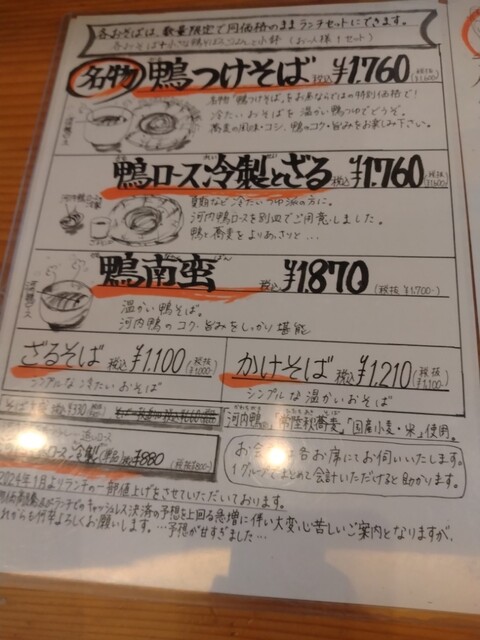 各おそばは、数量限定で同価格のままランチセットにできます。
名物 鴨つけそば 税込 ¥1,760 (税抜 ¥1,600)
名物「鴨つけそば」をお昼ならではの特別価格で!
冷たいおそばを 温かい鴨つゆでどうぞ。
蕎麦の風味・コシ、鴨のコク・旨みをお楽しみ下さい。
河内鴨ロース
鴨ロース冷製とざる 税込 ¥1,760 (税抜 ¥1,600)
夏期など冷たいつゆ派の方に。
河内鴨ロースを別皿でご用意しました。
鴨と蕎麦をよりあっさりと…
鴨南蛮 税込 ¥1,870 (税抜 ¥1,700-)
温かい鴨そば。
河内鴨のコク・旨みをしっかり堪能
ざるそば 税込 ¥1,100 (税抜 ¥1,000)
シンプルな冷たいおそば
かけそば 税込 ¥1,210 (税抜 ¥1,100)
シンプルな温かいおそば
「河内鴨」「常陸秋蕎麦」「国産小麦・米」使用。
ロース冷製 ¥880 (税抜¥800-)
お会計は各お席にてお伺いいたします。
1グループでまとめて会計いただけると助かります。
2024年1月よりランチの一部値上げをさせていただいております。
ランチでのキャッシュレス決済の予想を上回る急増に伴い大変心苦しいご案内となりますが、
これからも何卒よろしくお願いします。…予想が甘すぎました…